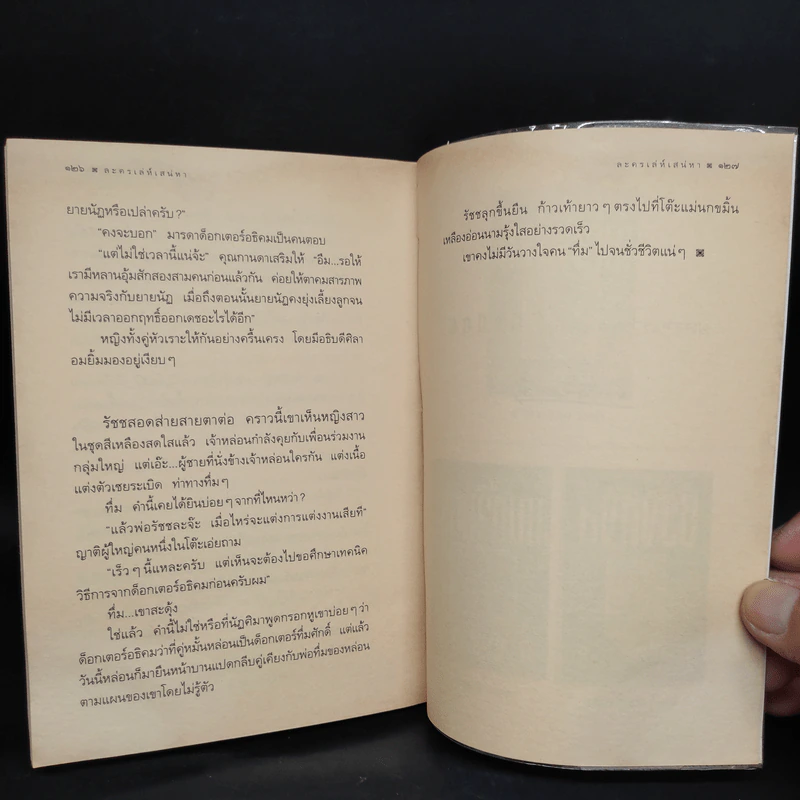 ๑๒๖ ละครเล่ห์เสน่หา
ยายนัฏหรือเปล่าครับ?"
"คงจะบอก" มารดาด็อกเตอร์อธิคมเป็นคนตอบ
"แต่ไม่ใช่เวลานี้แน่จ้ะ" คุณกานดาเสริมให้ "อืม...รอให้
เรามีหลานอุ้มสักสองสามคนก่อนแล้วกัน ค่อยให้ตาคมสารภาพ
ความจริงกับยายนัฏ เมื่อถึงตอนนั้นยายนัฏคงยุ่งเลี้ยงลูกจน
ไม่มีเวลาออกฤทธิ์ออกเดชอะไรได้อีก"
หญิงทั้งคู่หัวเราะให้กันอย่างครื้นเครง โดยมีอธิบดีศิลา
อมยิ้มมองอยู่เงียบๆ
รัชชสอดส่ายสายตาต่อ คราวนี้เขาเห็นหญิงสาว
ในชุดสีเหลืองสดใสแล้ว เจ้าหล่อนกำลังคุยกับเพื่อนร่วมงาน
กลุ่มใหญ่ แต่เอ๊ะ...ผู้ชายที่นั่งข้างเจ้าหล่อนใครกัน แต่งเนื้อ
แต่งตัวเชยระเบิด ท่าทางทึ่มๆ
ทึ่ม คำนี้เคยได้ยินบ่อยๆ จากที่ไหนหว่า?
"แล้วพ่อรัชชละจ๊ะ เมื่อไหร่จะแต่งการแต่งงานเสียที"
ญาติผู้ใหญ่คนหนึ่งในโต๊ะเอ่ยถาม
"เร็วๆ นี้แหละครับ แต่เห็นจะต้องไปขอศึกษาเทคนิค
วิธีการจากด็อกเตอร์อธิคมก่อนครับผม"
ทึ่ม...เขาสะดุ้ง
ใช่แล้ว คำนี้ไม่ใช่หรือที่นัฏศิมาพูดกรอกหูเขาบ่อยๆ ว่า
ด็อกเตอร์อธิคมว่าที่คู่หมั้นหล่อนเป็นด็อกเตอร์ทึ่มศักดิ์ แต่แล้ว
วันนี้หล่อนก็มายืนหน้าบานแปดกลีบคู่เคียงกับพ่อทึ่มของหล่อน
ตามแผนของเขาโดยไม่รู้ตัว
ละครเล่ห์เสน่หา ๑๒๗
รัชชลุกขึ้นยืน ก้าวเท้ายาวๆ ตรงไปที่โต๊ะแม่นกขมิ้น
เหลืองอ่อนนามรุ้งใสอย่างรวดเร็ว
เขาคงไม่มีวันวางใจคน "ทึ่ม" ไปจนชั่วชีวิตแน่ๆ